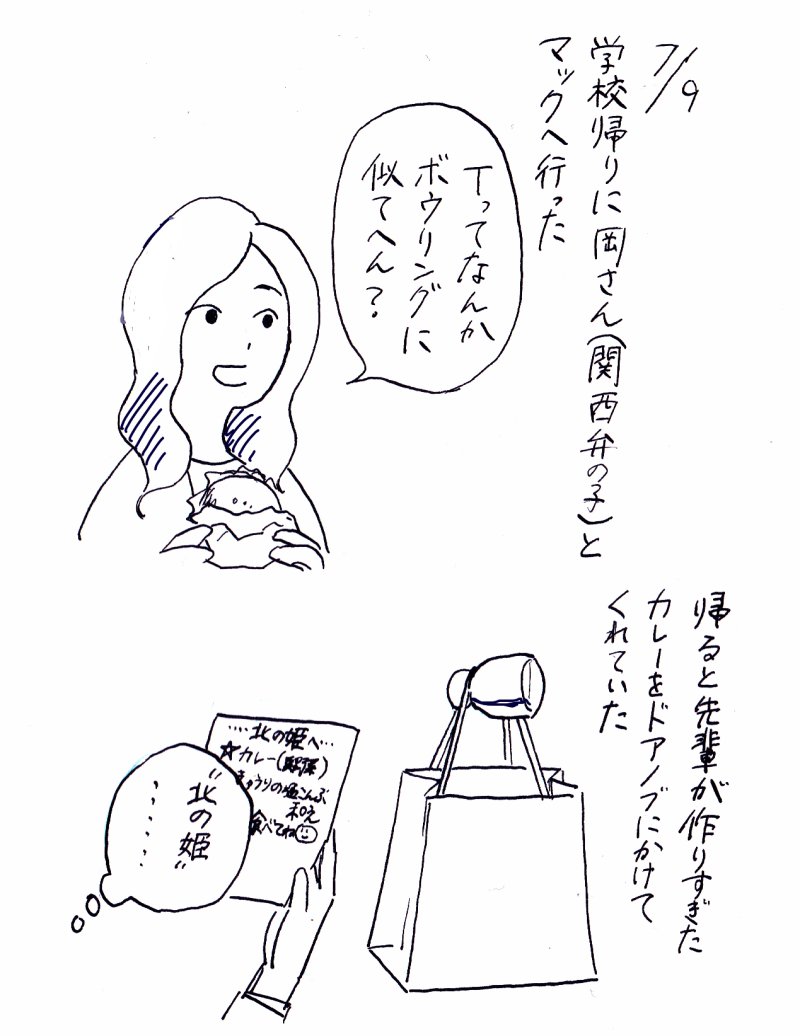 7/9
学校帰りに岡さん(関西弁の子)と
マックへ行った
Tってなんか
ボウリングに
似てへん?
帰ると先輩が作りすぎた
カレーをドアノブにかけて
くれていた
…北の姫へ…
☆カレー()
きゅうりの塩こんぶ
和え
食べてね☺
“北の姫”
……